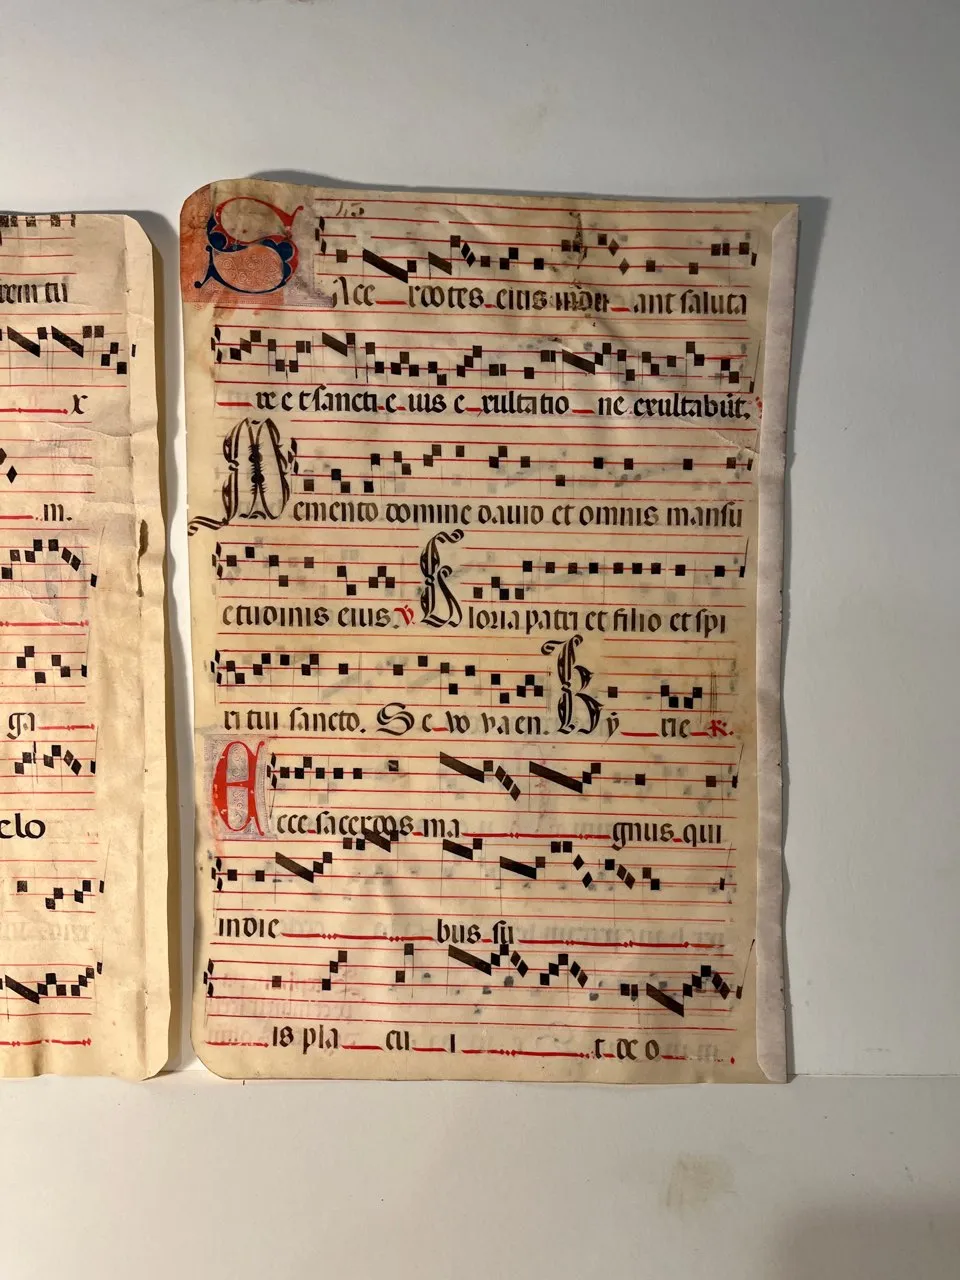 rem tu
x
m.
ga
clo
Sace rdotes eius indu ant saluta
re et sancti e ius e xultatio ne exultabūt.
Memento domine dauid et omnis mansu
etudinis eius. V. Gloria patri et filio et spi
ritui sancto. S e vo va en. Ky rie R.
Ecce sacerdos ma gnus qui
in die bus su
is pla cu i t de o